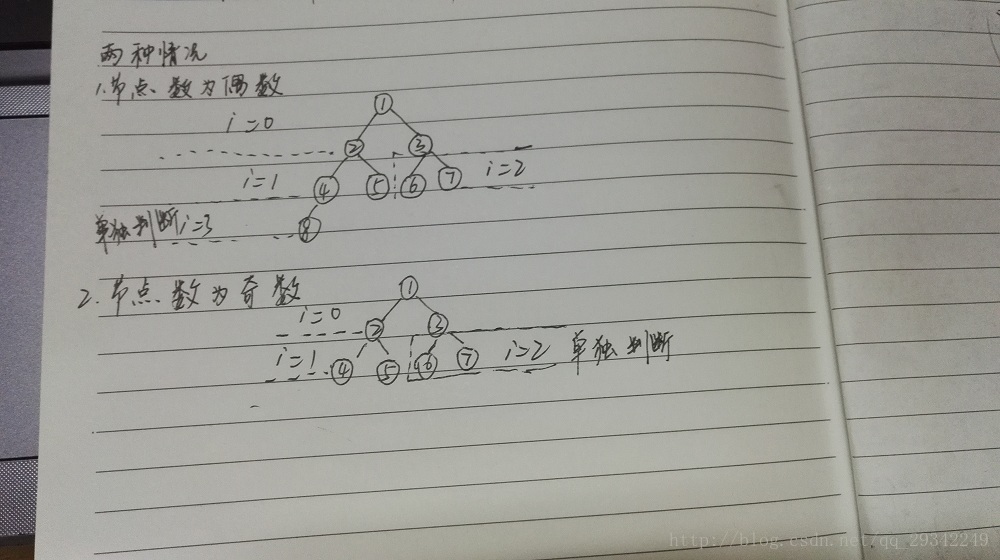 两种情况
1.节点数为偶数
i=0
①
② ③
i=1
④ ⑤ ⑥ ⑦
i=2
单独判断i=3
⑧
2.节点数为奇数
①
i=0
② ③
i=1
④ ⑤ ⑥ ⑦
i=2 单独判断
http://blog.csdn.net/qq_29342249